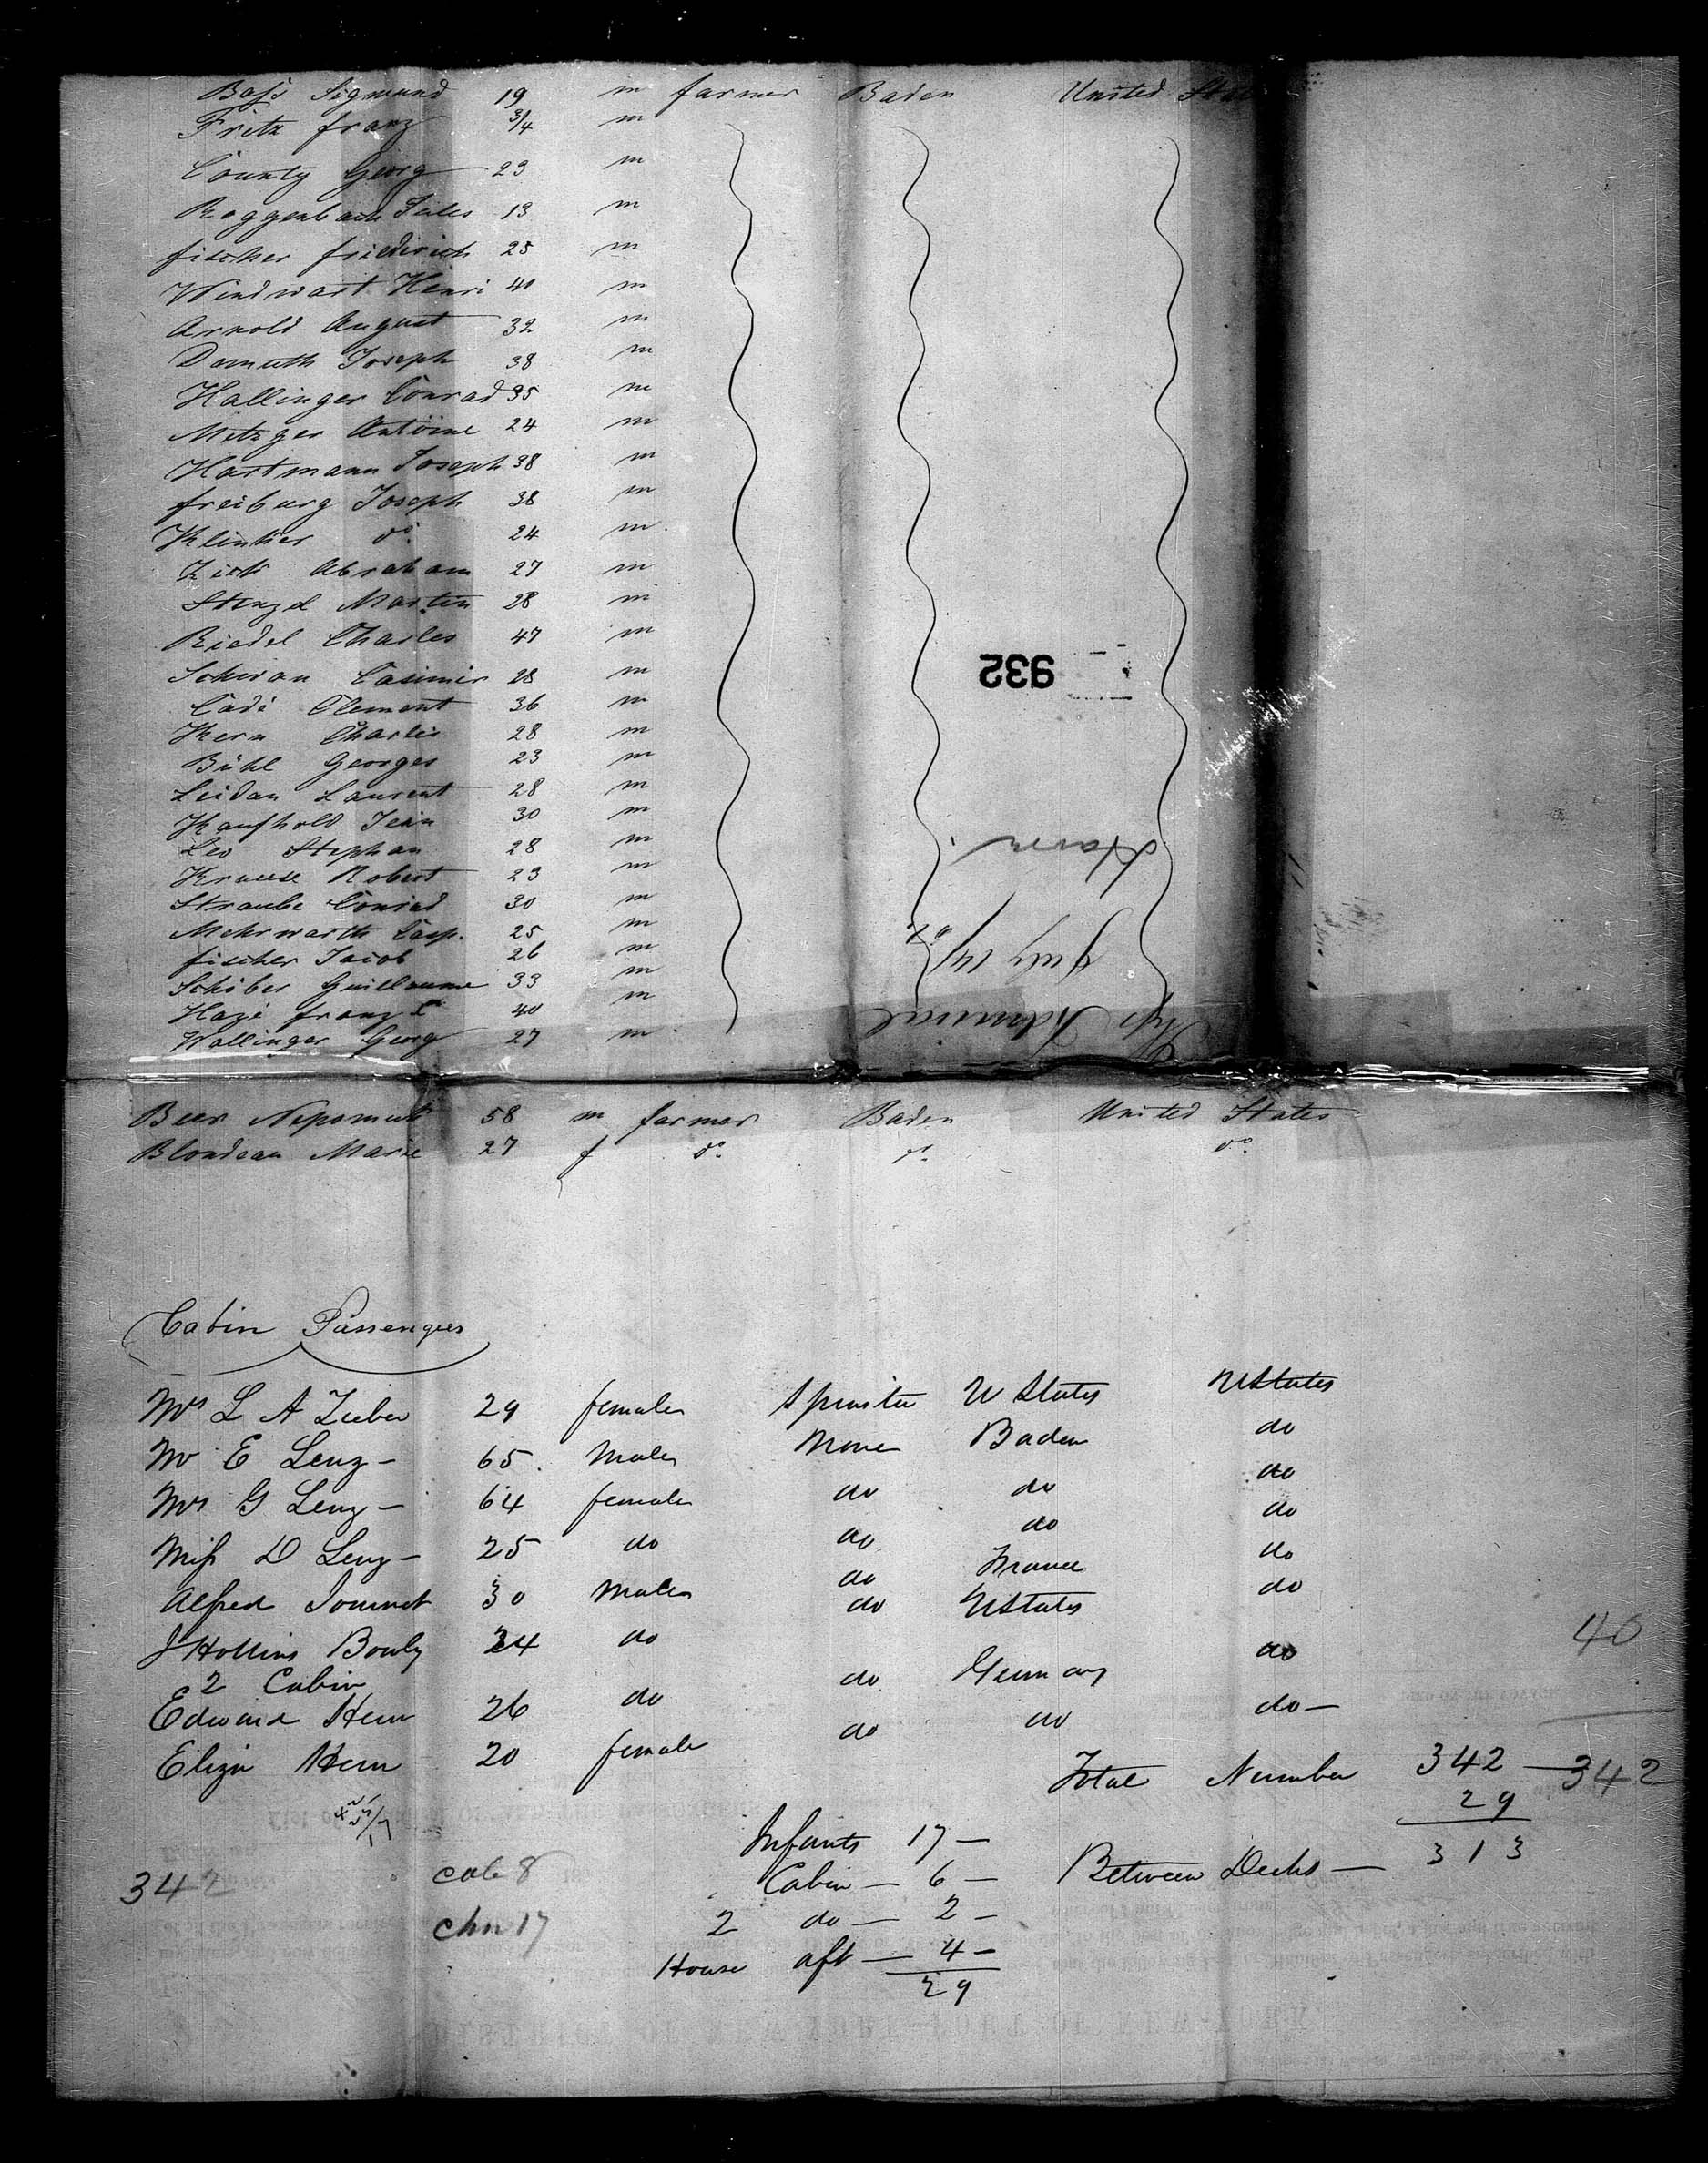 Bass Sigmund 19 m farmer Baden United Stat
Fritz franz 3/4 m
County Georg 23 m
Roggenbach Jules 13 m
fischer friedrich 25 m
Windwart Henri 41 m
Arnold August 32 m
Damuth Joseph 38 m
Hallinger Conrad 35 m
Metzger Antoine 24 m
Hartmann Joseph 38 m
freiburg Joseph 38 m
Klinker do. 24 m
Abraham 27 m
Stenzel Martin 28 m
Riedel Charles 47 m
Schwan Casimir 28 m
Cadé Clement 36 m
Kern Charles 28 m
Bühl Georges 23 m
Leidan Laurent 28 m
Kaufhold Jean 30 m
Leo Stephan 28 m
Krause Robert 23 m
Straube Conrad 30 m
Mehrwarth Casp. 25 m
fischer Jacob 26 m
Schiber Guillaume 33 m
Hazé franz 40 m
Wallinger Georg 27 m
932
Havre
July 14/
Ship Admiral
Beer Nepomuk 58 m farmer Baden United States
Blondeau Marie 27 f do. do. do.
Cabin Passengers
Mrs L A Zieber 29 female Spinster U States UStates
Mr E Lenz - 65 Male None Baden do
Mrs G Lenz - 64 female do do do
Miss D Lenz - 25 do do do do
Alfred 30 Male do France do
J Hollins Bowly 24 do do UStates do
2 Cabin
Edward Hern 26 do do Germany do
Eliza Hern 20 female do do do -
40
Total Number 342 - 342
29
Between Decks - 313
Infants 17 -
Cabin - 6 -
2 do - 2 -
House aft - 4 -
29
342
cab 8
chn 17